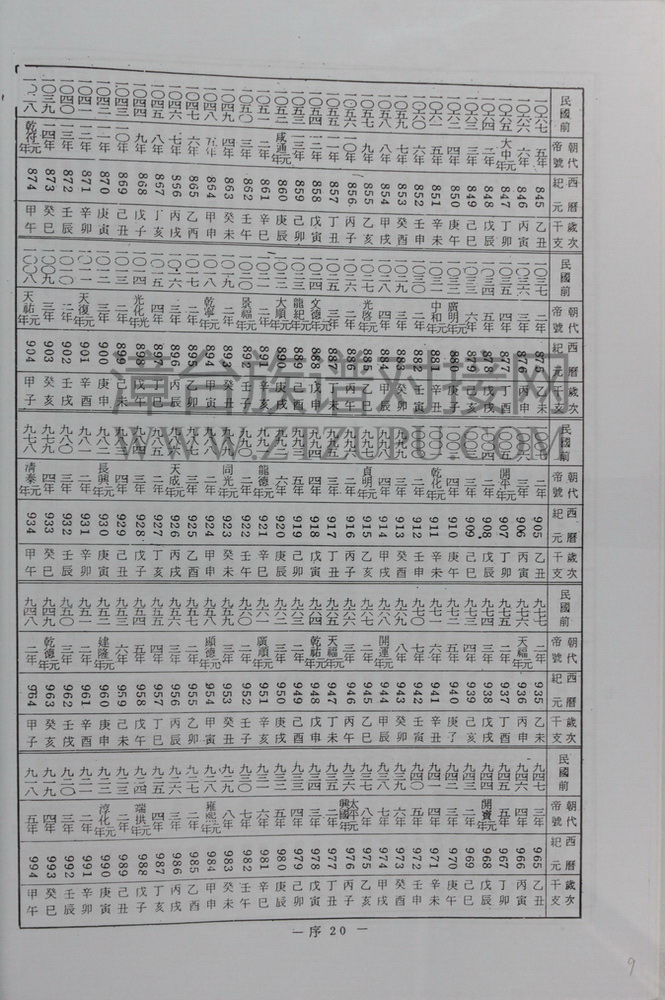 民國前 朝代帝號 西曆紀元 歲次干支
一〇六七 五年 845 乙丑
一〇六六 六年 846 丙寅
一〇六五 大中元年 847 丁卯
一〇六四 二年 848 戊辰
一〇六三 三年 849 己巳
一〇六二 四年 850 庚午
一〇六一 五年 851 辛未
一〇六〇 六年 852 壬申
一〇五九 七年 853 癸酉
一〇五八 八年 854 甲戌
一〇五七 九年 855 乙亥
一〇五六 一〇年 856 丙子
一〇五五 一一年 857 丁丑
一〇五四 一二年 858 戊寅
一〇五三 一三年 859 己卯
一〇五二 咸通元年 860 庚辰
一〇五一 二年 861 辛巳
一〇五〇 三年 862 壬午
一〇四九 四年 863 癸未
一〇四八 五年 864 甲申
一〇四七 六年 865 乙酉
一〇四六 七年 866 丙戌
一〇四五 八年 867 丁亥
一〇四四 九年 868 戊子
一〇四三 一〇年 869 己丑
一〇四二 一一年 870 庚寅
一〇四一 一二年 871 辛卯
一〇四〇 一三年 872 壬辰
一〇三九 一四年 873 癸巳
一〇三八 乾符元年 874 甲午
民國前 朝代帝號 西曆紀元 歲次干支
一〇三七 二年 875 乙未
一〇三六 三年 876 丙申
一〇三五 四年 877 丁酉
一〇三四 五年 878 戊戌
一〇三三 六年 879 己亥
一〇三二 廣明元年 880 庚子
一〇三一 中和元年 881 辛丑
一〇三〇 二年 882 壬寅
一〇二九 三年 883 癸卯
一〇二八 四年 884 甲辰
一〇二七 光啓元年 885 乙巳
一〇二六 二年 886 丙午
一〇二五 三年 887 丁未
一〇二四 文德元年 888 戊申
一〇二三 龍紀元年 889 己酉
一〇二二 大順元年 890 庚戌
一〇二一 二年 891 辛亥
一〇二〇 景福元年 892 壬子
一〇一九 二年 893 癸丑
一〇一八 乾寧元年 894 甲寅
一〇一七 二年 895 乙卯
一〇一六 三年 896 丙辰
一〇一五 四年 897 丁巳
一〇一四 光化元年 898 戊午
一〇一三 二年 899 己未
一〇一二 三年 900 庚申
一〇一一 天復元年 901 辛酉
一〇一〇 二年 902 壬戌
一〇〇九 三年 903 癸亥
一〇〇八 天祐元年 904 甲子
民國前 朝代帝號 西曆紀元 歲次干支
一〇〇七 二年 905 乙丑
一〇〇六 三年 906 丙寅
一〇〇五 開平元年 907 丁卯
一〇〇四 二年 908 戊辰
一〇〇三 三年 909 己巳
一〇〇二 四年 910 庚午
一〇〇一 乾化元年 911 辛未
一〇〇〇 二年 912 壬申
九九九 三年 913 癸酉
九九八 四年 914 甲戌
九九七 貞明元年 915 乙亥
九九六 二年 916 丙子
九九五 三年 917 丁丑
九九四 四年 918 戊寅
九九三 五年 919 己卯
九九二 六年 920 庚辰
九九一 龍德元年 921 辛巳
九九〇 二年 922 壬午
九八九 同光元年 923 癸未
九八八 二年 924 甲申
九八七 三年 925 乙酉
九八六 天成元年 926 丙戌
九八五 二年 927 丁亥
九八四 三年 928 戊子
九八三 四年 929 己丑
九八二 長興元年 930 庚寅
九八一 二年 931 辛卯
九八〇 三年 932 壬辰
九七九 四年 933 癸巳
九七八 清泰元年 934 甲午
民國前 朝代帝號 西曆紀元 歲次干支
九七七 二年 935 乙未
九七六 天福元年 936 丙申
九七五 二年 937 丁酉
九七四 三年 938 戊戌
九七三 四年 939 己亥
九七二 五年 940 庚子
九七一 六年 941 辛丑
九七〇 七年 942 壬寅
九六九 八年 943 癸卯
九六八 開運元年 944 甲辰
九六七 二年 945 乙巳
九六六 三年 946 丙午
九六五 天福元年 947 丁未
九六四 乾祐元年 948 戊申
九六三 二年 949 己酉
九六二 三年 950 庚戌
九六一 廣順元年 951 辛亥
九六〇 二年 952 壬子
九五九 三年 953 癸丑
九五八 顯德元年 954 甲寅
九五七 二年 955 乙卯
九五六 三年 956 丙辰
九五五 四年 957 丁巳
九五四 五年 958 戊午
九五三 六年 959 己未
九五二 建隆元年 960 庚申
九五一 二年 961 辛酉
九五〇 三年 962 壬戌
九四九 乾德元年 963 癸亥
九四八 二年 964 甲子
民國前 朝代帝號 西曆紀元 歲次干支
九四七 三年 965 乙丑
九四六 四年 966 丙寅
九四五 五年 967 丁卯
九四四 開寶元年 968 戊辰
九四三 二年 969 己巳
九四二 三年 970 庚午
九四一 四年 971 辛未
九四〇 五年 972 壬申
九三九 六年 973 癸酉
九三八 七年 974 甲戌
九三七 八年 975 乙亥
九三六 太平興國元年 976 丙子
九三五 二年 977 丁丑
九三四 三年 978 戊寅
九三三 四年 979 己卯
九三二 五年 980 庚辰
九三一 六年 981 辛巳
九三〇 七年 982 壬午
九二九 八年 983 癸未
九二八 雍熙元年 984 甲申
九二七 二年 985 乙酉
九二六 三年 986 丙戌
九二五 四年 987 丁亥
九二四 端拱元年 988 戊子
九二三 二年 989 己丑
九二二 淳化元年 990 庚寅
九二一 二年 991 辛卯
九二〇 三年 992 壬辰
九一九 四年 993 癸巳
九一八 五年 994 甲午
—序20—
9
漳台族谱对接网
WWW.ZTZUPU.COM